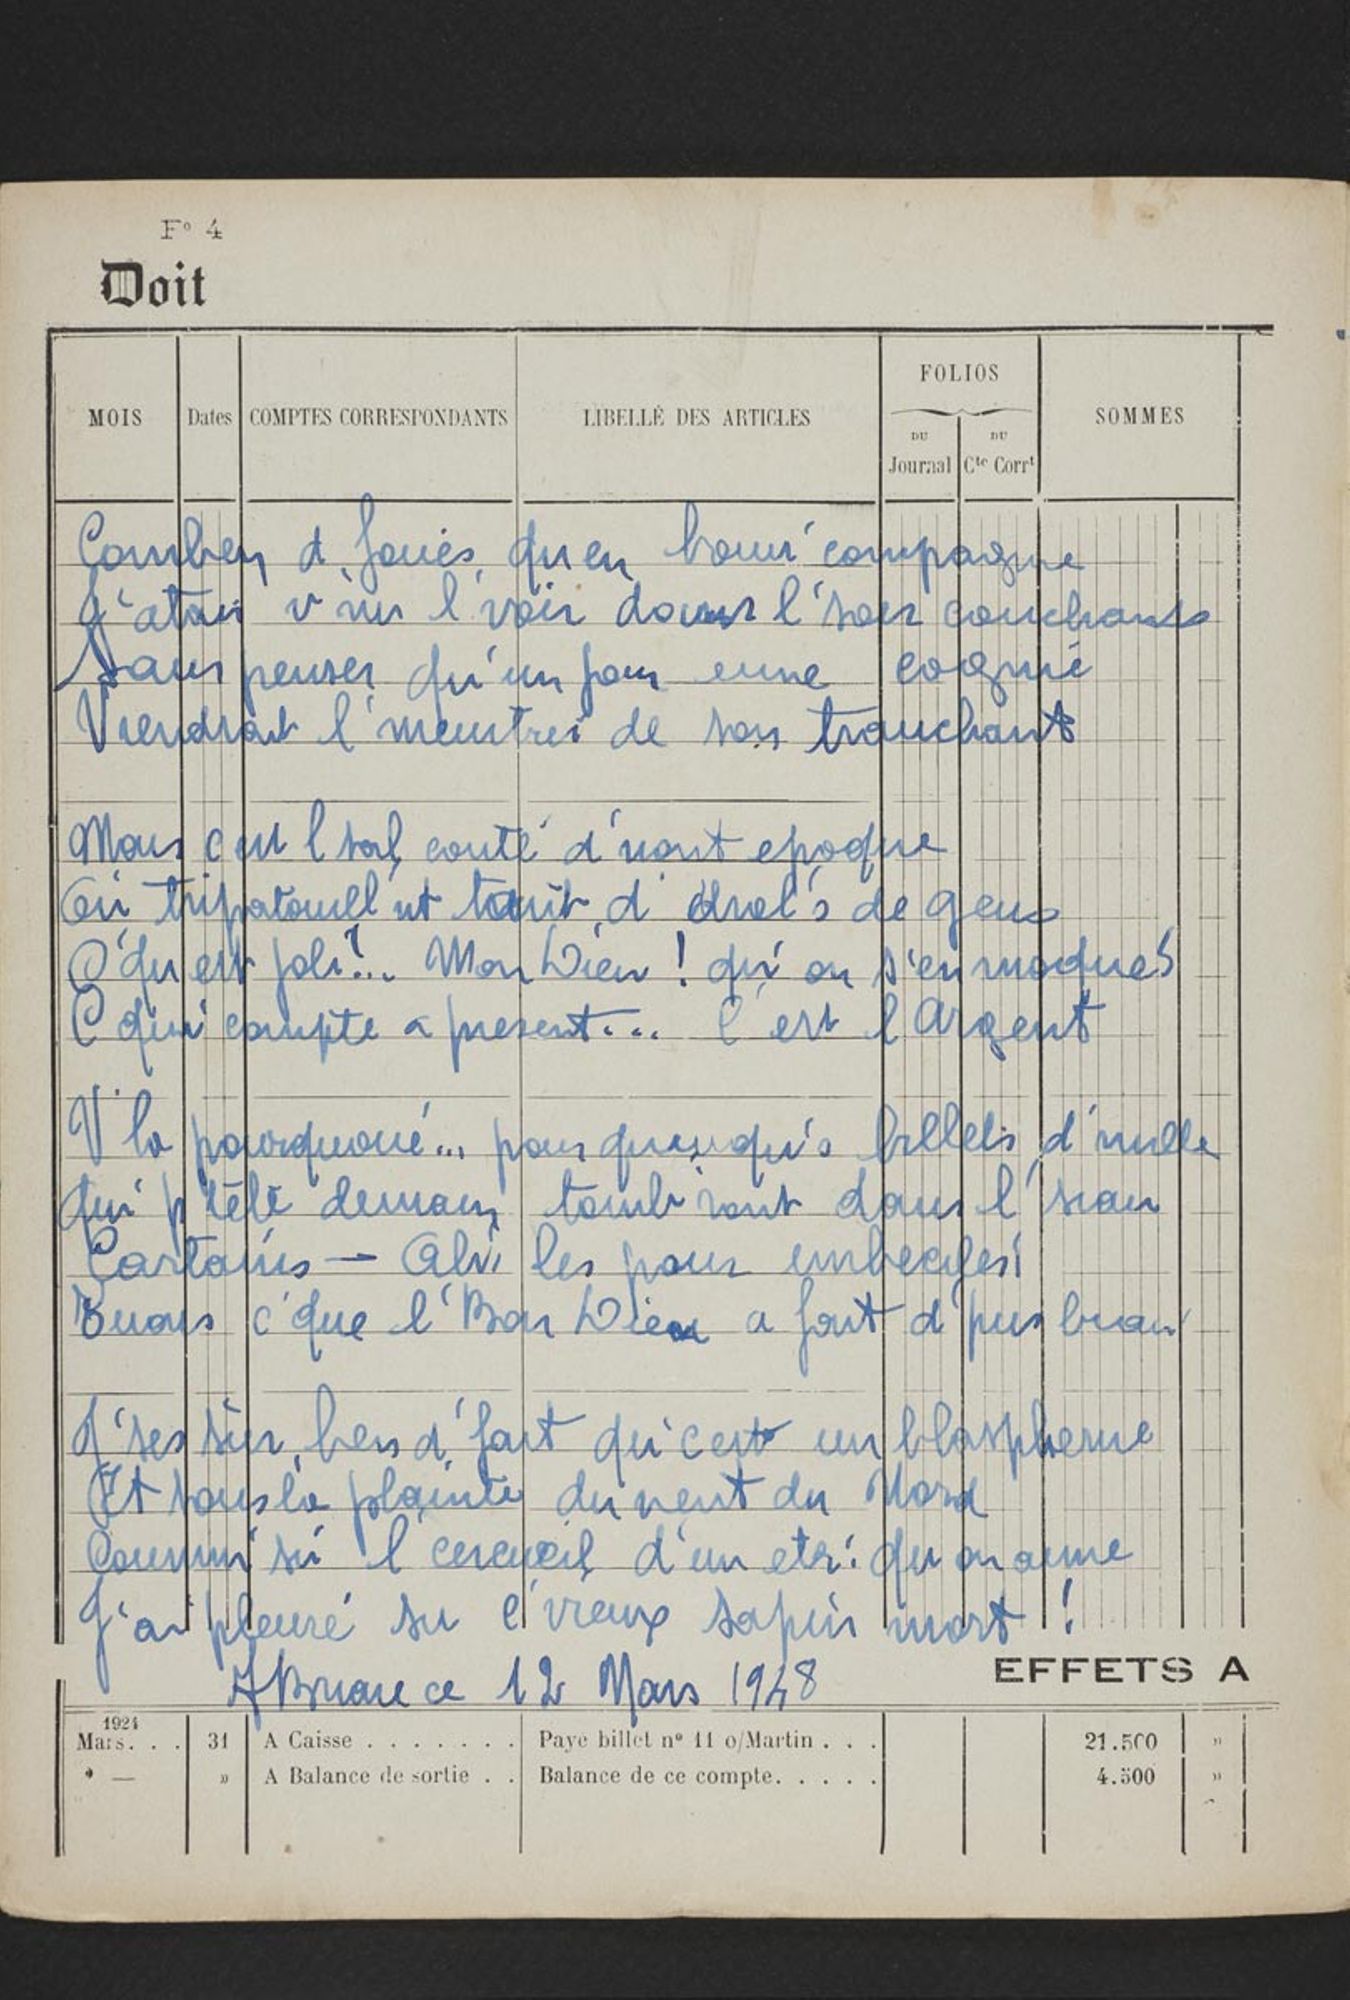 F° 4
Doit
MOIS Dates COMPTES CORRESPONDANTS LIBELLÉ DES ARTICLES FOLIOS SOMMES
DU DU
Journal Cte Corrt
Comben d'foués, qu'en bonn' compagne
J'atais v'nu l'voir dans l'soer couchant
Sans penser qu'un jour eune cogné
Viendrait l'meurtri de son tranchant
Mais c'est l'sal couté d'nout epoque
Où tripatouill'nt tout d'drol's de gens
C'qu'est joli?.. Mon Dieu! qu'on s'en moque!
C'qui compte a present... C'est l'Argent
V'la pourquoué... pour quequ's billets d'mille
Qui p'têtt demain tomb'ront dans l'siau
Cartains — Ah! les pour imbeciles!
Tuons c'que l'Bon Dieu a fait d'pus biau
J'ses sûr ben d'fait qu'c'est un blaspheme
Et sous la plainte du vent du Nord
Coumm' su l'cercueil d'un etr' qu'on aime
J'ai pleuré su l'vieux sapin mort!
ce 12 Mars 1948
EFFETS A
1924
Mars. . . 31 A Caisse . . . . . . . Paye billet n° 11 o/Martin . . . 21.500 »
» — » A Balance de sortie . . Balance de ce compte. . . . . 4.500 »